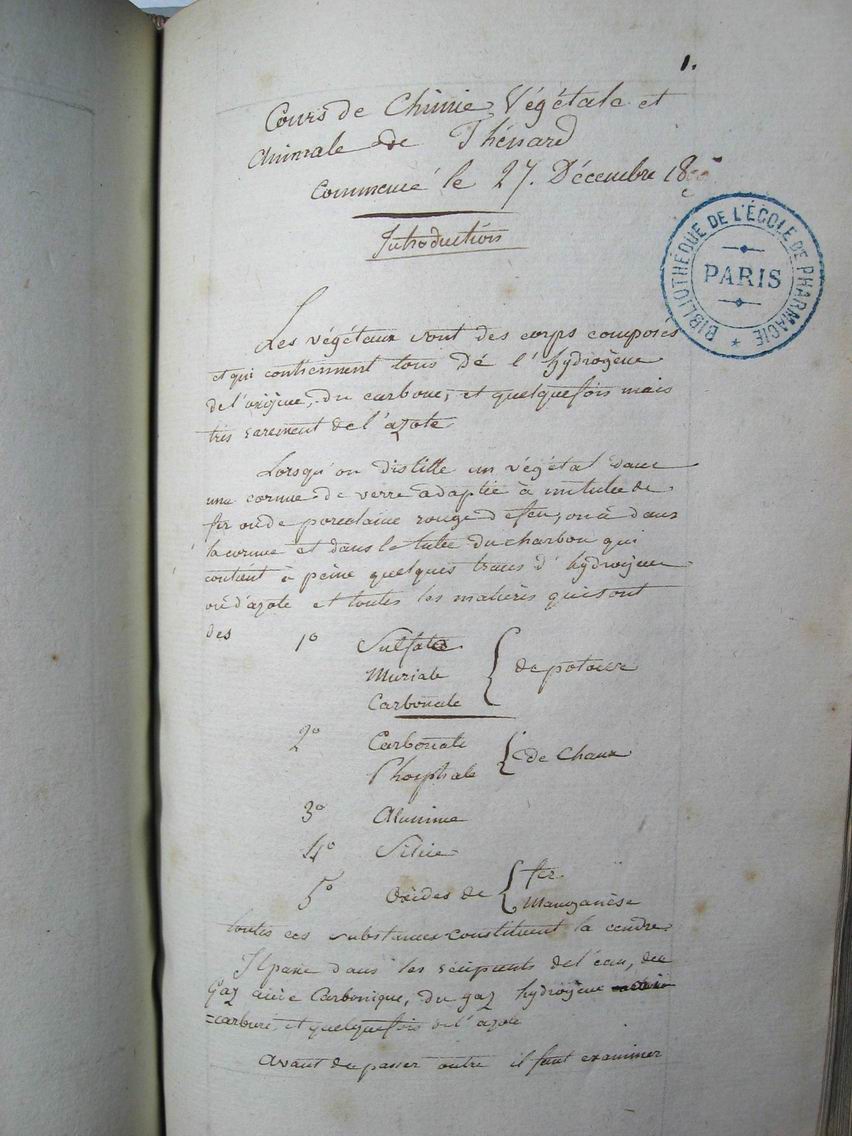 1.
Cours de Chimie Végétale et
Animale de Thénard
Commencé le 27. Décembre 18
Introduction
BIBLIOTHÈQUE DE L'ÉCOLE DE PHARMACIE
PARIS
Les végétaux sont des corps composés
et qui contiennent tous de l'hydrogène
de l'oxigène, du carbone, et quelquefois mais
très rarement de l'azote.
Lorsqu'on distille un végétal dans
une cornue de verre adaptée à un tube de
fer ou de porcelaine rouge de feu, on a dans
la cornue et dans le tube du charbon qui
contient à peine quelques traces d'hydrogène
ou d'azote et toutes les matières qui sont
des 1º Sulfate
Muriate
Carbonate
de potasse
2º Carbonate
Phosphate
de Chaux
3º Alumine
4º Silice
5º Oxides de
fer
Manganèse
toutes ces substances constituent la cendre
Il passe dans les récipients de l'eau, du
Gaz acide Carbonique, du gaz hydrogène
=carburé, et quelquefois de l'azote
Avant de passer outre il faut examiner